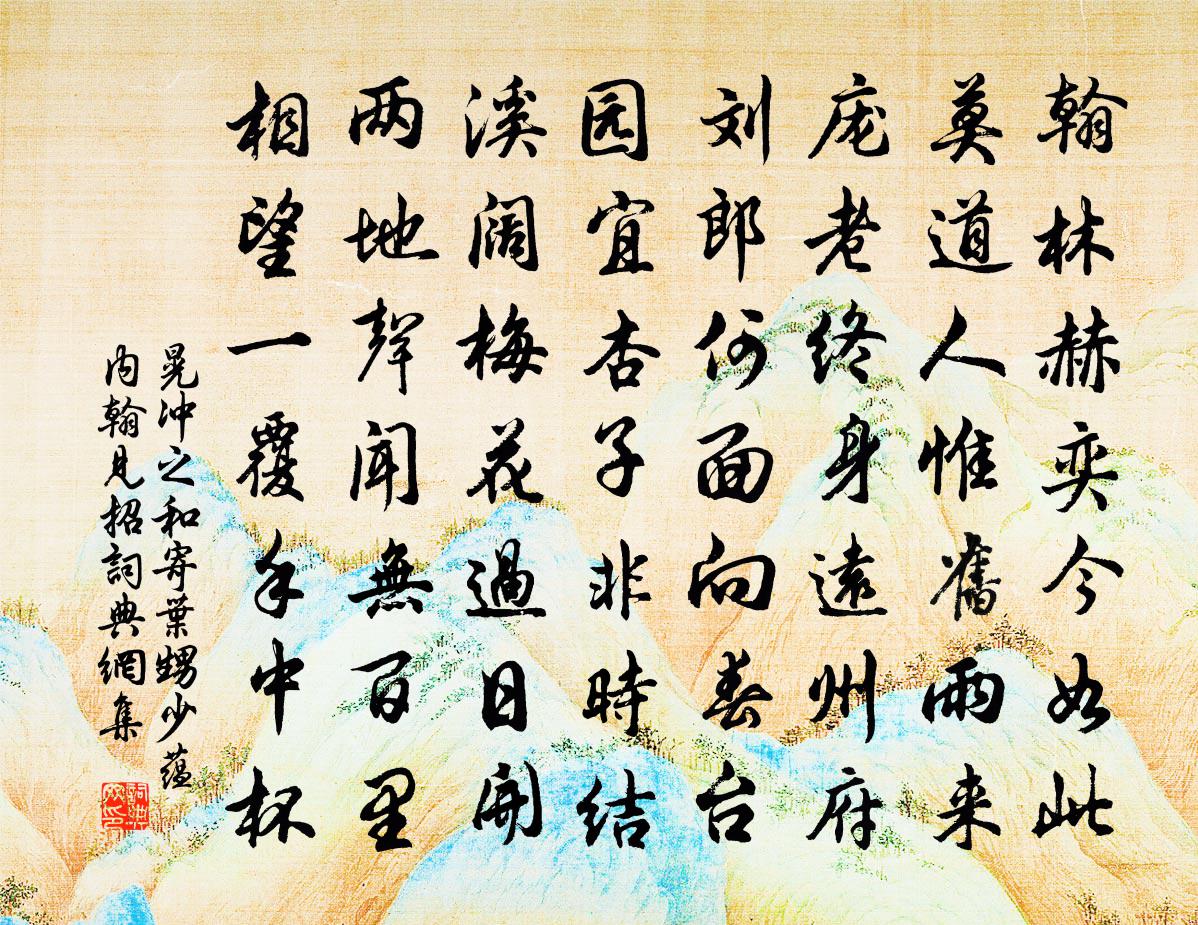 翰林赫奕今如此
莫道人惟舊雨来
庞老终身遠州府
刘郎何面向春台
园宜杏子非時结
溪阔梅花過日開
两地聲聞無百里
相望一覆手中杯
晃冲之和寄葉甥少蕴
内翰見招詞典網集